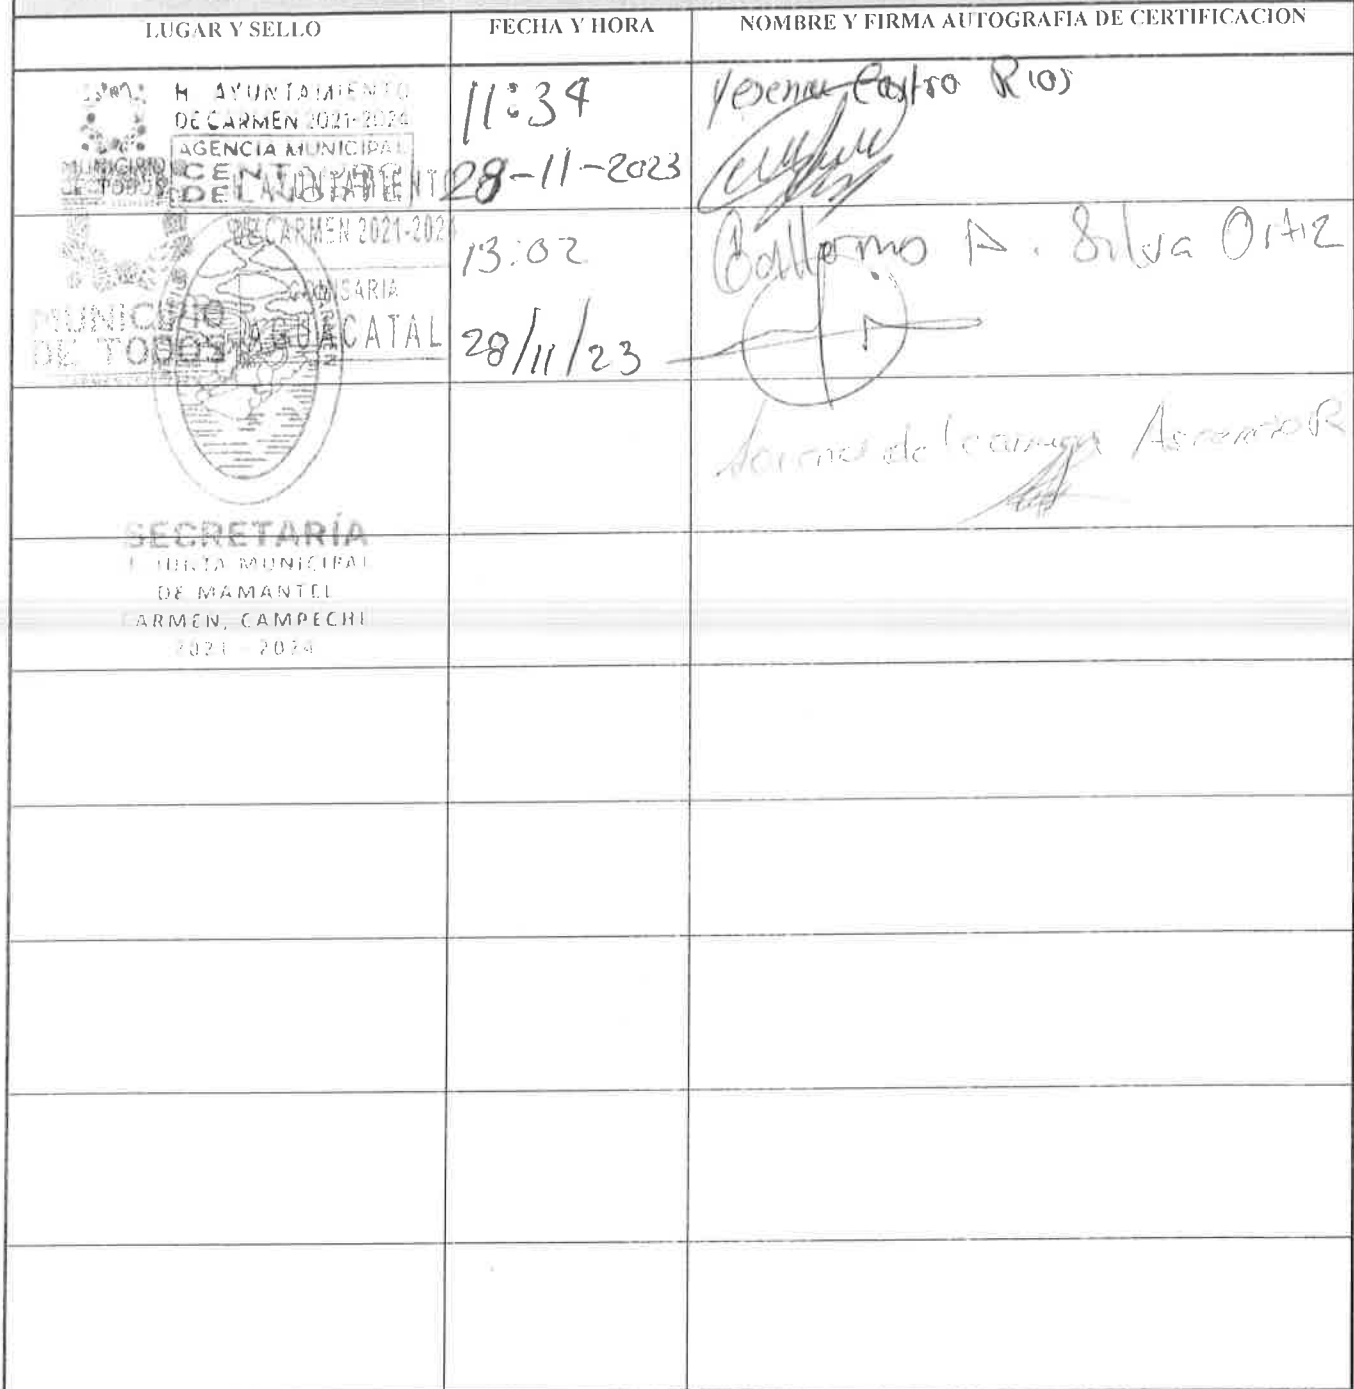 LUGAR Y SELLO
FECHA Y HORA
NOMBRE Y FIRMA AUTOGRAFIA DE CERTIFICACION
H. AYUNTAMIENTO
DE CARMEN 2021-2024
AGENCIA MUNICIPAL
MUNICIPIO
DE TODOS
11:34
28-11-2023
Castro Rios
H. AYUNTAMIENTO
DE CARMEN 2021-2024
COMISARIA
AGUACATAL
MUNICIPIO
DE TODOS
13:02
28/11/23
A. Silva Ortiz
SECRETARÍA
H. JUNTA MUNICIPAL
DE MAMANTEL
CARMEN, CAMPECHE
2021 - 2024